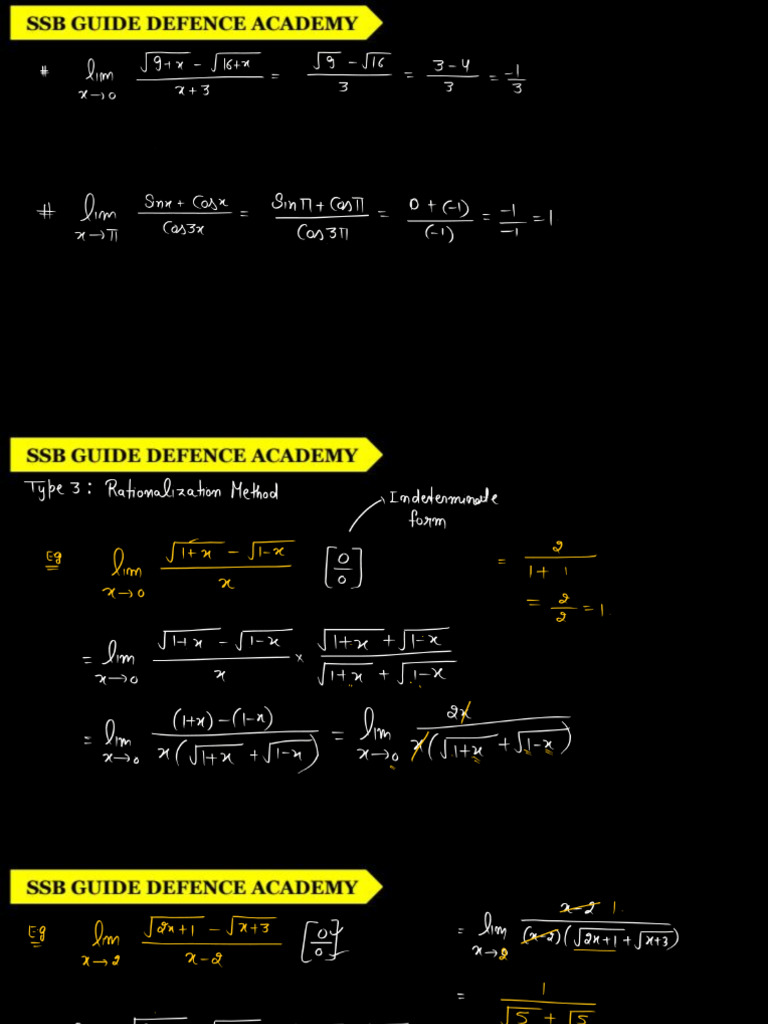 SSB GUIDE DEFENCE ACADEMY
# lim x→0 (√9+x − √16+x)/(x+3) = (√9 − √16)/3 = (3−4)/3 = −1/3
# lim x→π (Sinx + Cosx)/(Cos3x) = (Sinπ + Cosπ)/(Cos3π) = (0 + (−1))/((−1)) = −1/−1 = 1
SSB GUIDE DEFENCE ACADEMY
Type 3 : Rationalization Method
Indeterminate
form
Eg lim x→0 (√1+x − √1−x)/x [0/0]
= lim x→0 (√1+x − √1−x)/x × (√1+x + √1−x)/(√1+x + √1−x)
= lim x→0 ((1+x) − (1−x))/(x(√1+x + √1−x)) = lim x→0 2x/(x(√1+x + √1−x))
= 2/(1+1)
= 2/2 = 1.
SSB GUIDE DEFENCE ACADEMY
Eg lim x→2 (√2x+1 − √x+3)/(x−2) [0/0]
= lim x→2 (x−2) 1./((x−2)(√2x+1 + √x+3))
= 1/(√5 + √5)